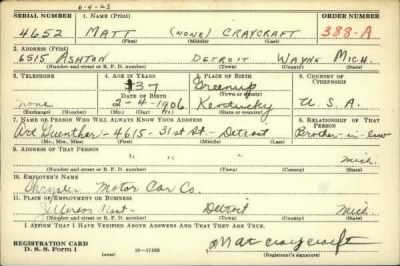 6-4-23
SERIAL NUMBER 1. NAME (Print) ORDER NUMBER
4652 MATT (NONE) CRAYCRAFT 388-A
(First) (Middle) (Last)
2. ADDRESS (Print)
6515 ASHTON DETROIT WAYNE MICH.
(Number and street or R. F. D. number) (Town) (County) (State)
3. TELEPHONE 4. AGE IN YEARS 5. PLACE OF BIRTH 6. COUNTRY OF CITIZENSHIP
37 Greenup
none DATE OF BIRTH (Town or county)
2-4-1906 Kentucky U.S.A.
(Exchange) (Number) (Mo.) (Day) (Yr.) (State or country)
7. NAME OF PERSON WHO WILL ALWAYS KNOW YOUR ADDRESS 8. RELATIONSHIP OF THAT PERSON
Art Guenther - 4615 - 31st St - Detroit Brother-in-law
(Mr., Mrs., Miss) (First) (Middle) (Last)
9. ADDRESS OF THAT PERSON
" " " Mich.
(Number and street or R. F. D. number) (Town) (County) (State)
10. EMPLOYER'S NAME
Chrysler Motor Car Co.
11. PLACE OF EMPLOYMENT OR BUSINESS
Jefferson Detroit Mich.
(Number and street or R. F. D. number) (Town) (County) (State)
I AFFIRM THAT I HAVE VERIFIED ABOVE ANSWERS AND THAT THEY ARE TRUE.
REGISTRATION CARD
D. S. S. Form 1 (over) 16-17105 Mat craycraft
(Registrant's signature)